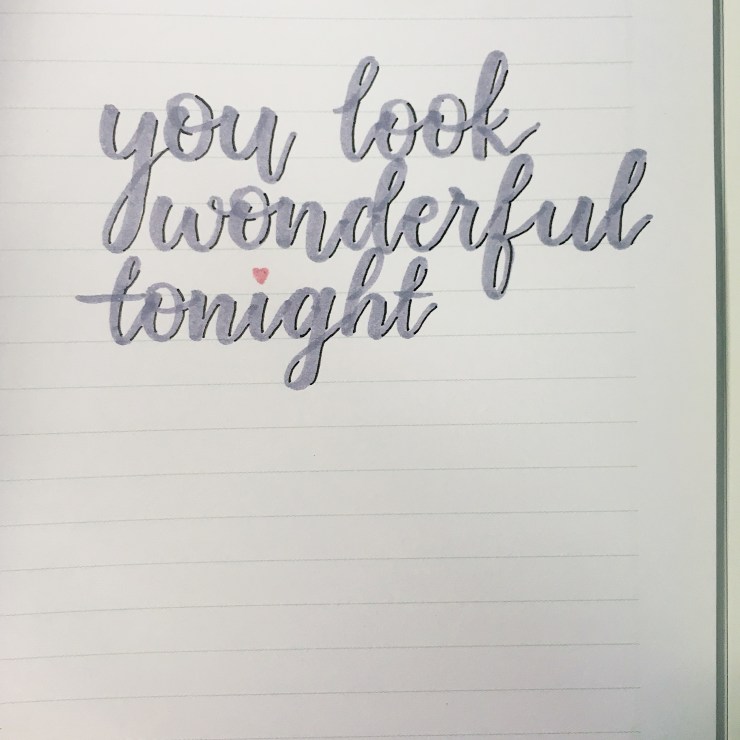 you look
wonderful
tonight